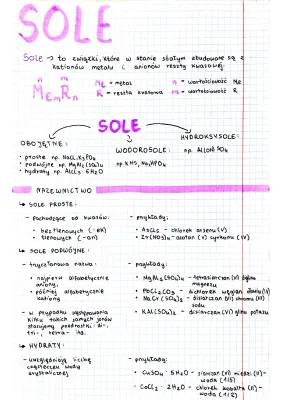 SOLE
Sole → to związki, które w stanie stałym zbudowane są z
kationów metalu i anionów reszty kwasowej.
n m
MemRn
Me = metal n = wartościowość Me
R = reszta kwasowa m = wartościowość R
SOLE
OBOJĘTNE:
WODOROSOLE:
HYDROKSYSOLE:
• proste np. NaCl, K3PO4
• podwójne np.
• hydraty np. AlCl3 · 6H2O
np. KHS,
np.
NAZEWNICTWO
↳ SOLE PROSTE:
- pochodzące od kwasów:
• beztlenowych (-ek)
• tlenowych (-an)
- przykłady:
• AsCl5 - chlorek arsenu (V)
• azotan (V) cyrkonu (IV)
↳ SOLE PODWÓJNE:
- trzyczłonowa nazwa:
• najpierw alfabetycznie
aniony,
• później alfabetycznie
kationy
- w przypadku występowania
kilku takich samych jonów
stosujemy przedrostki: di-,
tri-, tetra- itd.
- przykłady:
magnezu
• PbCl2CO3 - dichlorek węglan ołowiu (IV)
• NaCr(SO4)2 - disiarczan (VI) chromu (III)
sodu
• KAl(SO4)2 - disiarczan (VI) glinu potasu
↳ HYDRATY:
- uwzględniają liczbę
cząsteczek wody
krystalicznej
- przykłady:
• CuSO4 · 5H2O - siarczan (VI) miedzi (II) -
woda (1/5)
• CoCl2 · 2H2O - chlorek kobaltu (II) -
woda (1/2)